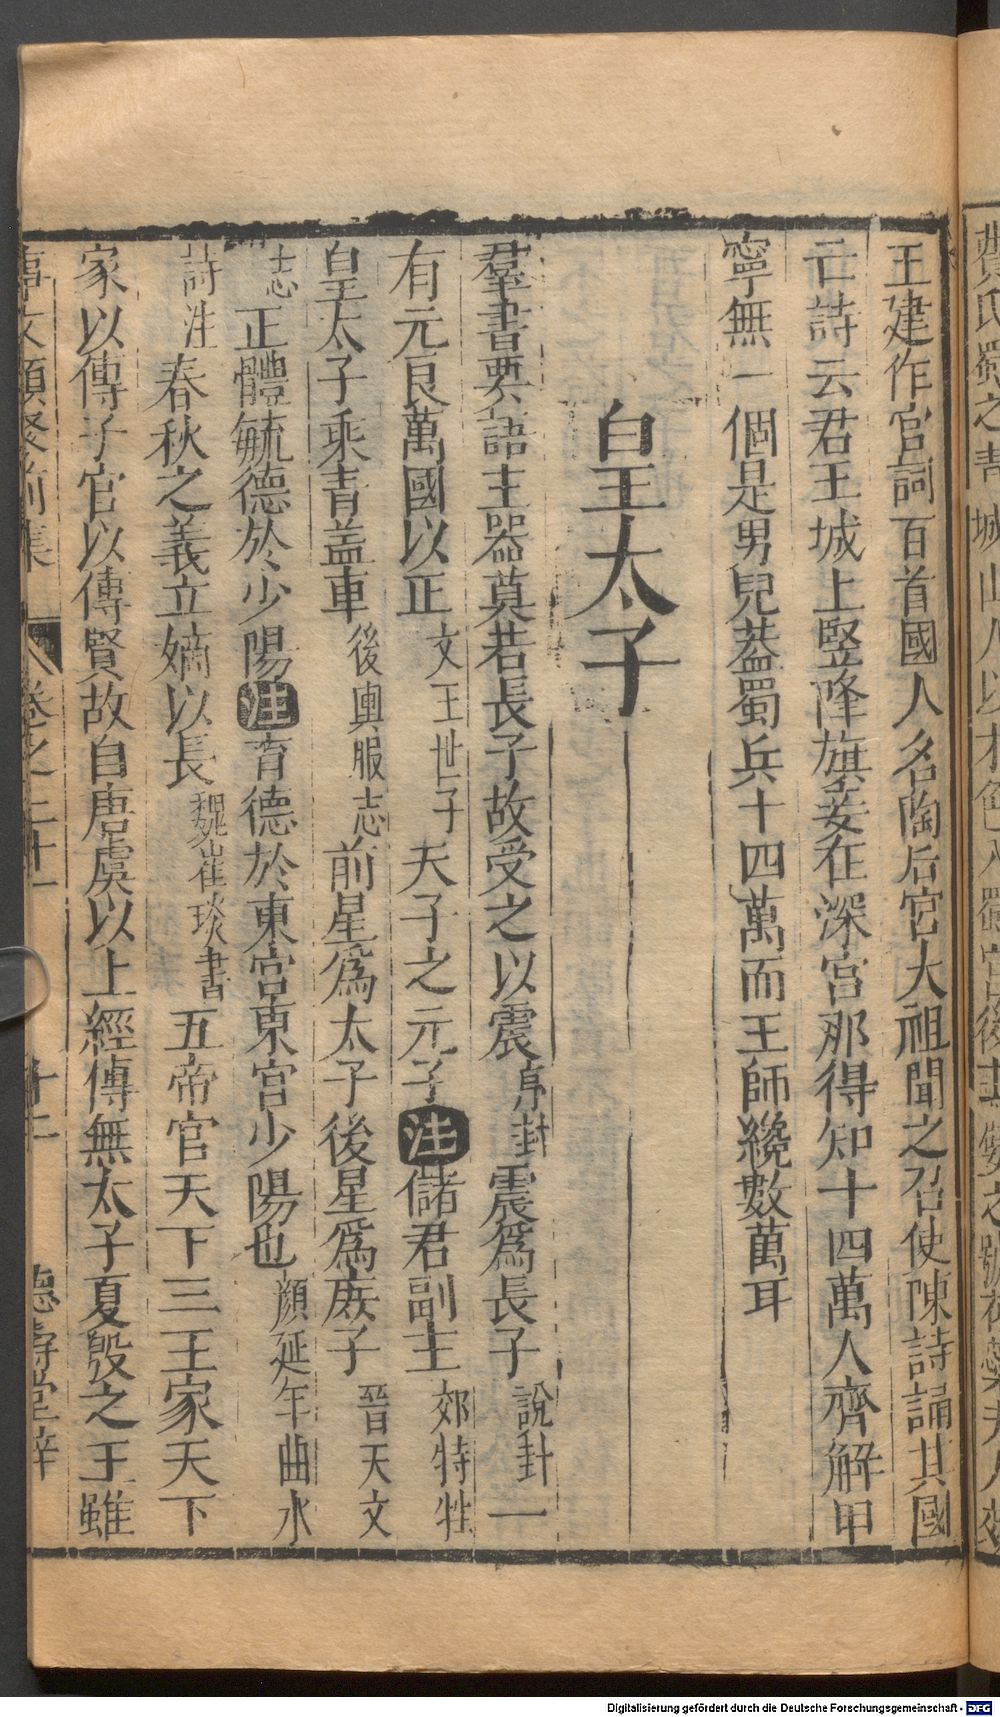 王建作宮詞百首國人名陶后宮大祖聞之召使陳詩誦其國
亡詩云君王城上竪降旗妾在深宮那得知十四萬人齊解甲
寧無一個是男兒葢蜀兵十四萬而王師纔數萬耳
皇太子
羣書要語主器莫若長子故受之以震序卦震爲長子說卦一
有元良萬國以正文王世子天子之元子注儲君副主郊特牲
皇太子乘青盖車後輿服志前星爲太子後星爲庶子晉天文
志正體毓德於少陽注育德於東宮東宮少陽也顔延年曲水
詩注春秋之義立嫡以長魏崔琰書五帝官天下三王家天下
家以傳子官以傳賢故自唐虞以上經傳無太子夏殷之王雖
事文類聚前集 卷之二十一 十二 德壽堂梓
Digitalisierung gefördert durch die Deutsche Forschungsgemeinschaft - DFG